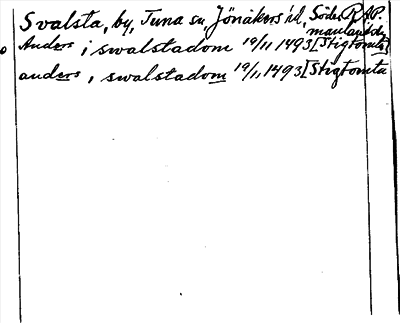 Svalsta, by, Tuna sn, Jönåkers hd, Söder R.A.P.
manland
Anders i swalstadom 19/11 1493 [Stigtomta]
anders, swalstadom 19/1, 1493 [Stigtomta